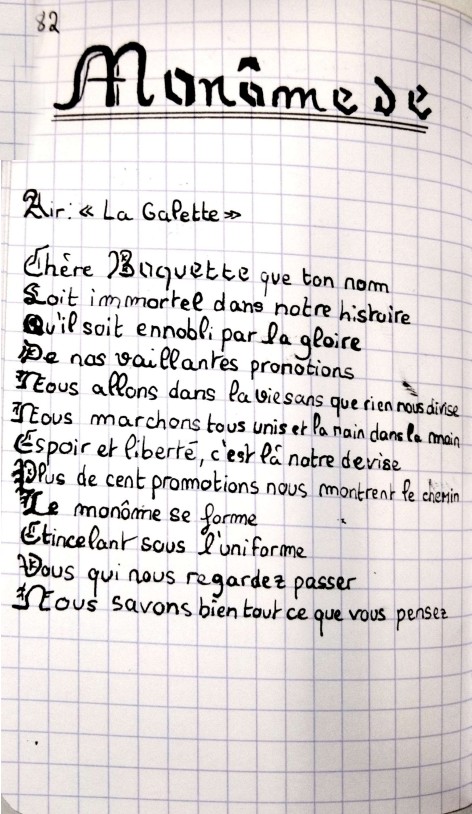 82
Monôme de
Air : « La Galette »
Chère Buquette que ton nom
Soit immortel dans notre histoire
Qu'il soit ennobli par la gloire
De nos vaillantes promotions
Nous allons dans la vie sans que rien nous divise
Nous marchons tous unis et la main dans la main
Espoir et liberté, c'est là notre devise
Plus de cent promotions nous montrent le chemin
Le monôme se forme
Etincelant sous l'uniforme
Vous qui nous regardez passer
Nous savons bien tout ce que vous pensez